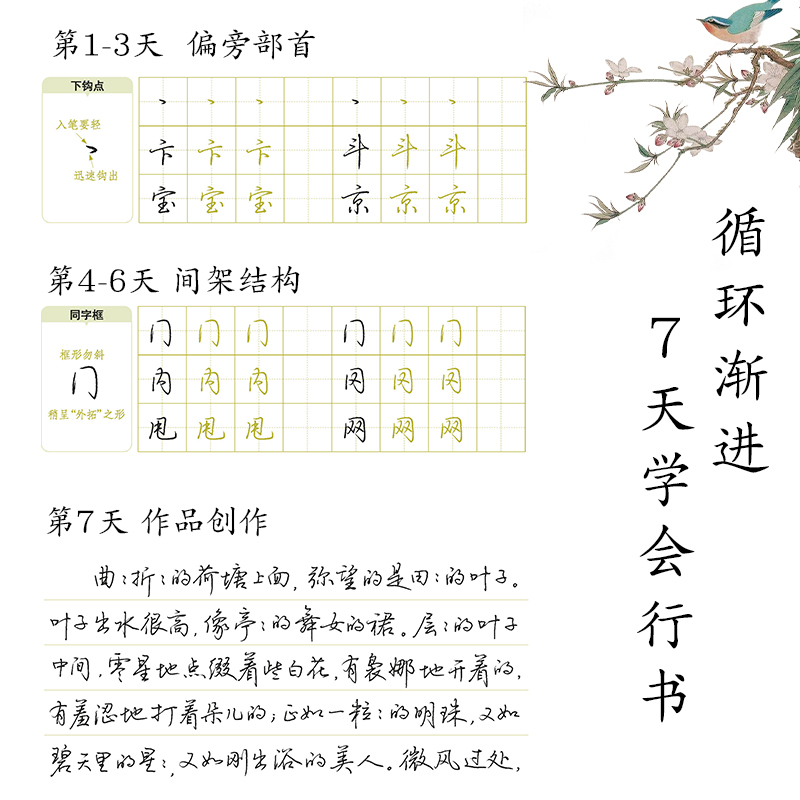 第1-3天 偏旁部首
下钩点
入笔要轻
迅速钩出
卞 卞 卞 斗 斗 斗
宝 宝 宝 京 京 京
第4-6天 间架结构
同字框
框形勿斜
门
稍呈“外拓”之形
门 门 门 门 门 门
内 内 内 冈 冈 冈
甩 甩 甩 网 网 网
第7天 作品创作
曲:折:的荷塘上面,弥望的是田:的叶子。
叶子出水很高,像亭:的舞女的裙。层:的叶子
中间,零星地点缀着些白花,有袅娜地开着的,
有羞涩地打着朵儿的;正如一粒:的明珠,又如
碧天里的星:,又如刚出浴的美人。微风过处,
循环渐进
7天学会行书